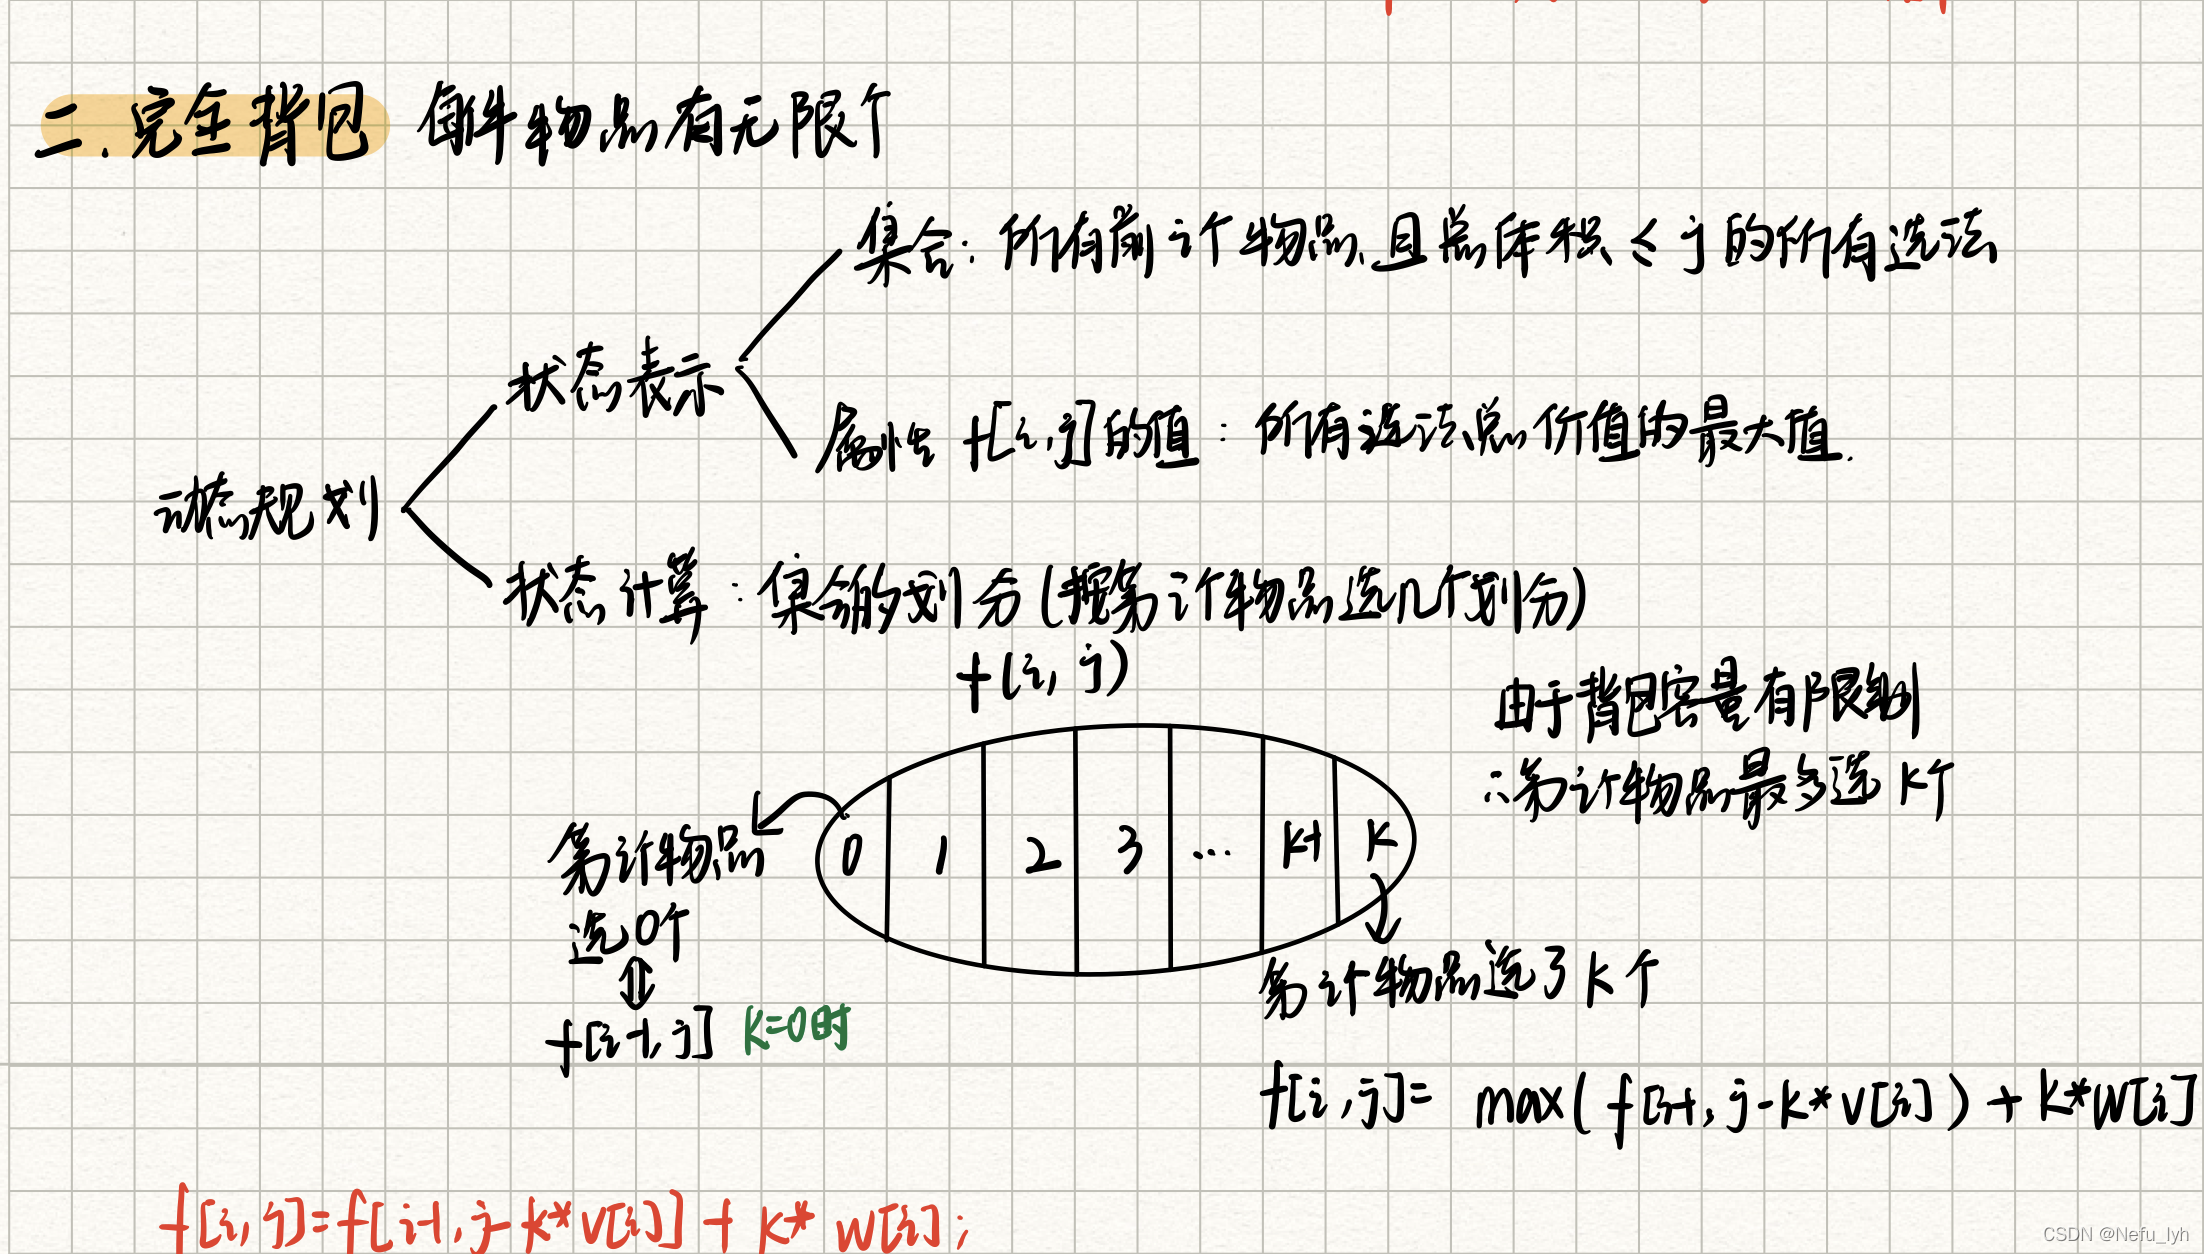 二.完全背包 每件物品有无限个
集合: 所有前i个物品,且总体积≤j的所有选法
状态表示
属性 f[i,j]的值: 所有选法总价值的最大值.
动态规划
状态计算: 集合的划分(按第i个物品选几个划分)
f(i, j)
由于背包容量有限制
∴第i个物品最多选k个
第i个物品
选0个
0 1 2 3 ... k-1 k
第i个物品选了k个
f[i-1, j] k=0时
f[i,j]= max(f[i-1, j-k*v[i])+k*w[i]
f[i,j]=f[i-1,j-k*v[i]]+k*w[i];
CSDN @Nefu_lyh